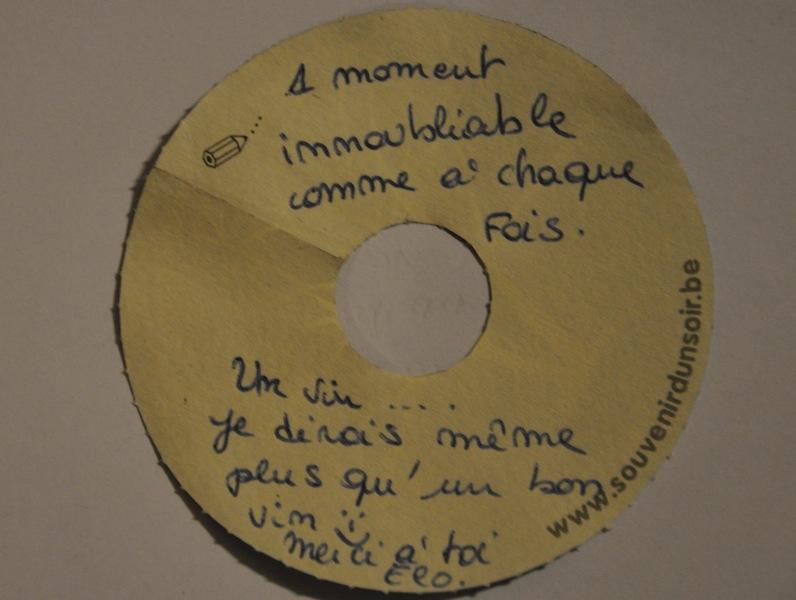 1 moment
innoubliable
comme à chaque
Fois.
Un vin ....
Je dirais même
plus qu'un bon
vin :)
merci à toi
Elo.
www.souvenirdunsoir.be